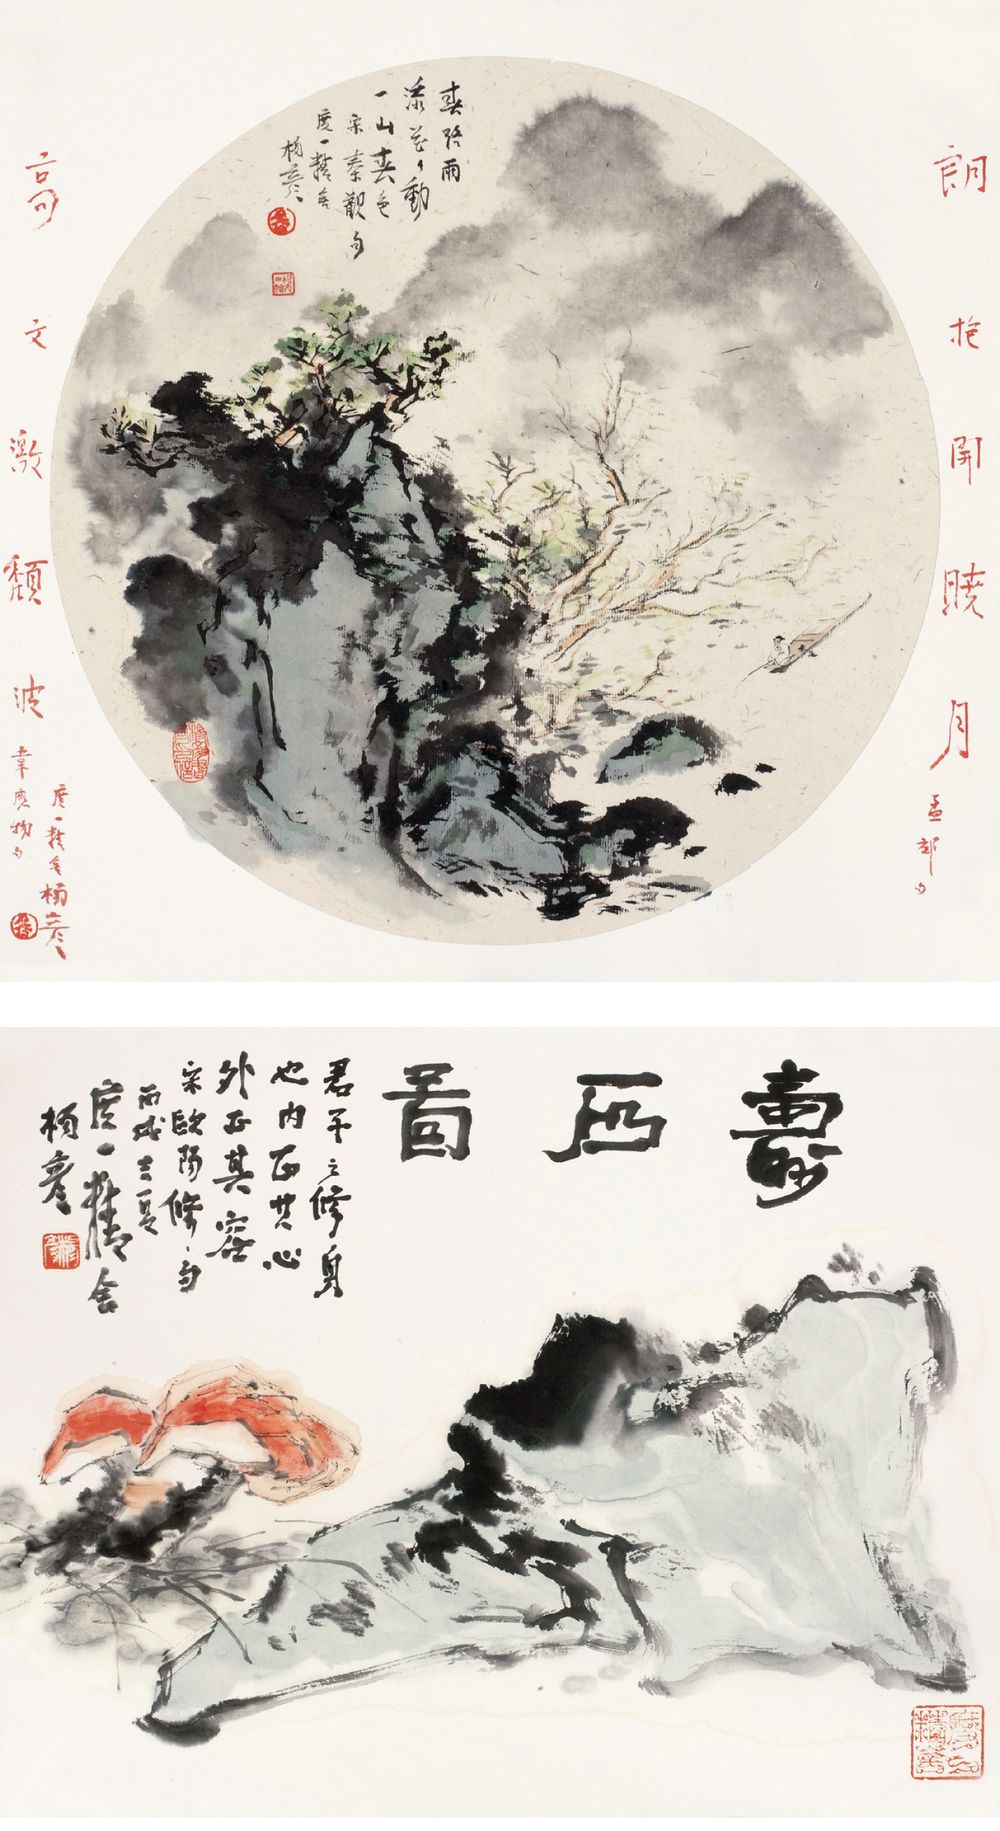 朗抱開曉月
孟郊句
春路雨
添花、動
一山春色
宋秦觀句
度一精舍
楊彥
高文激頹波
韋應物句
度一精舍楊彥
壽石圖
君子之修身
也内正其心
外正其容
宋歐陽修句
丙戌夏
度一精舍
楊彥